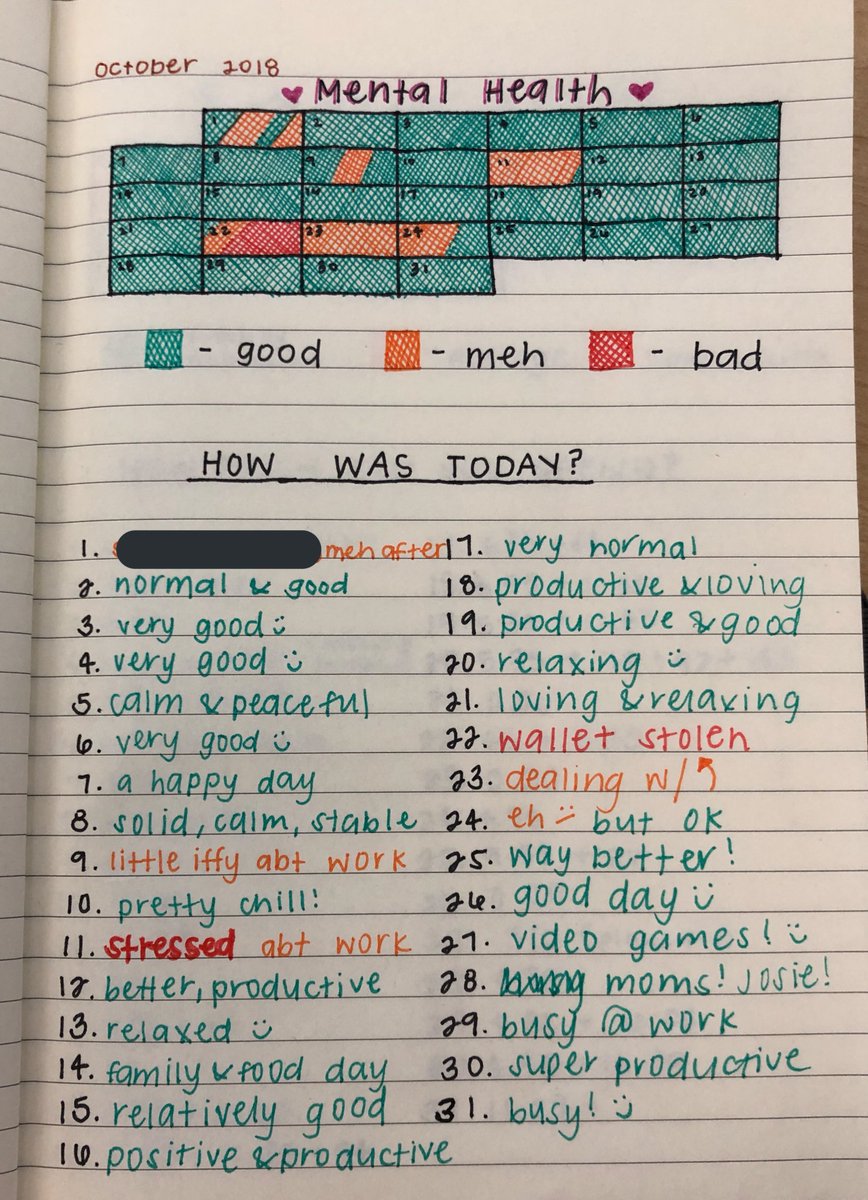 October 2018
Mental Health
1 2 3 4 5 6
7 8 9 10 11 12 13
14 15 16 17 18 19 20
21 22 23 24 25 26 27
28 29 30 31
- good - meh - bad
HOW WAS TODAY?
1. meh after
2. normal & good
3. very good :)
4. very good :)
5. calm & peaceful
6. very good :)
7. a happy day
8. solid, calm, stable
9. little iffy abt work
10. pretty chill!
11. stressed abt work
12. better, productive
13. relaxed :)
14. family & food day
15. relatively good
16. positive & productive
17. very normal
18. productive & loving
19. productive & good
20. relaxing :)
21. loving & relaxing
22. wallet stolen
23. dealing w/
24. eh :/ but OK
25. way better!
26. good day :)
27. video games! :)
28. moms! Josie!
29. busy @ work
30. super productive
31. busy! :)